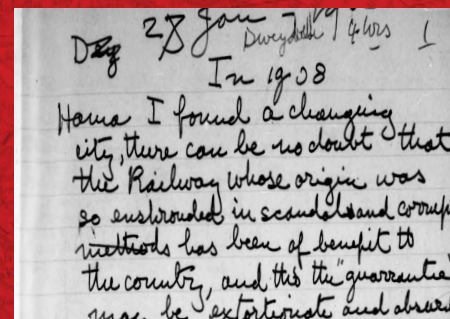 28 Jan
4 hrs 1
In 1908
Hama I found a changing
city, there can be no doubt that
the Railway whose origin was
so enshrouded in scandal and corrup
methods has been of benefit to
the country, and tho the "guarrantie"
may be extortionate and absurd